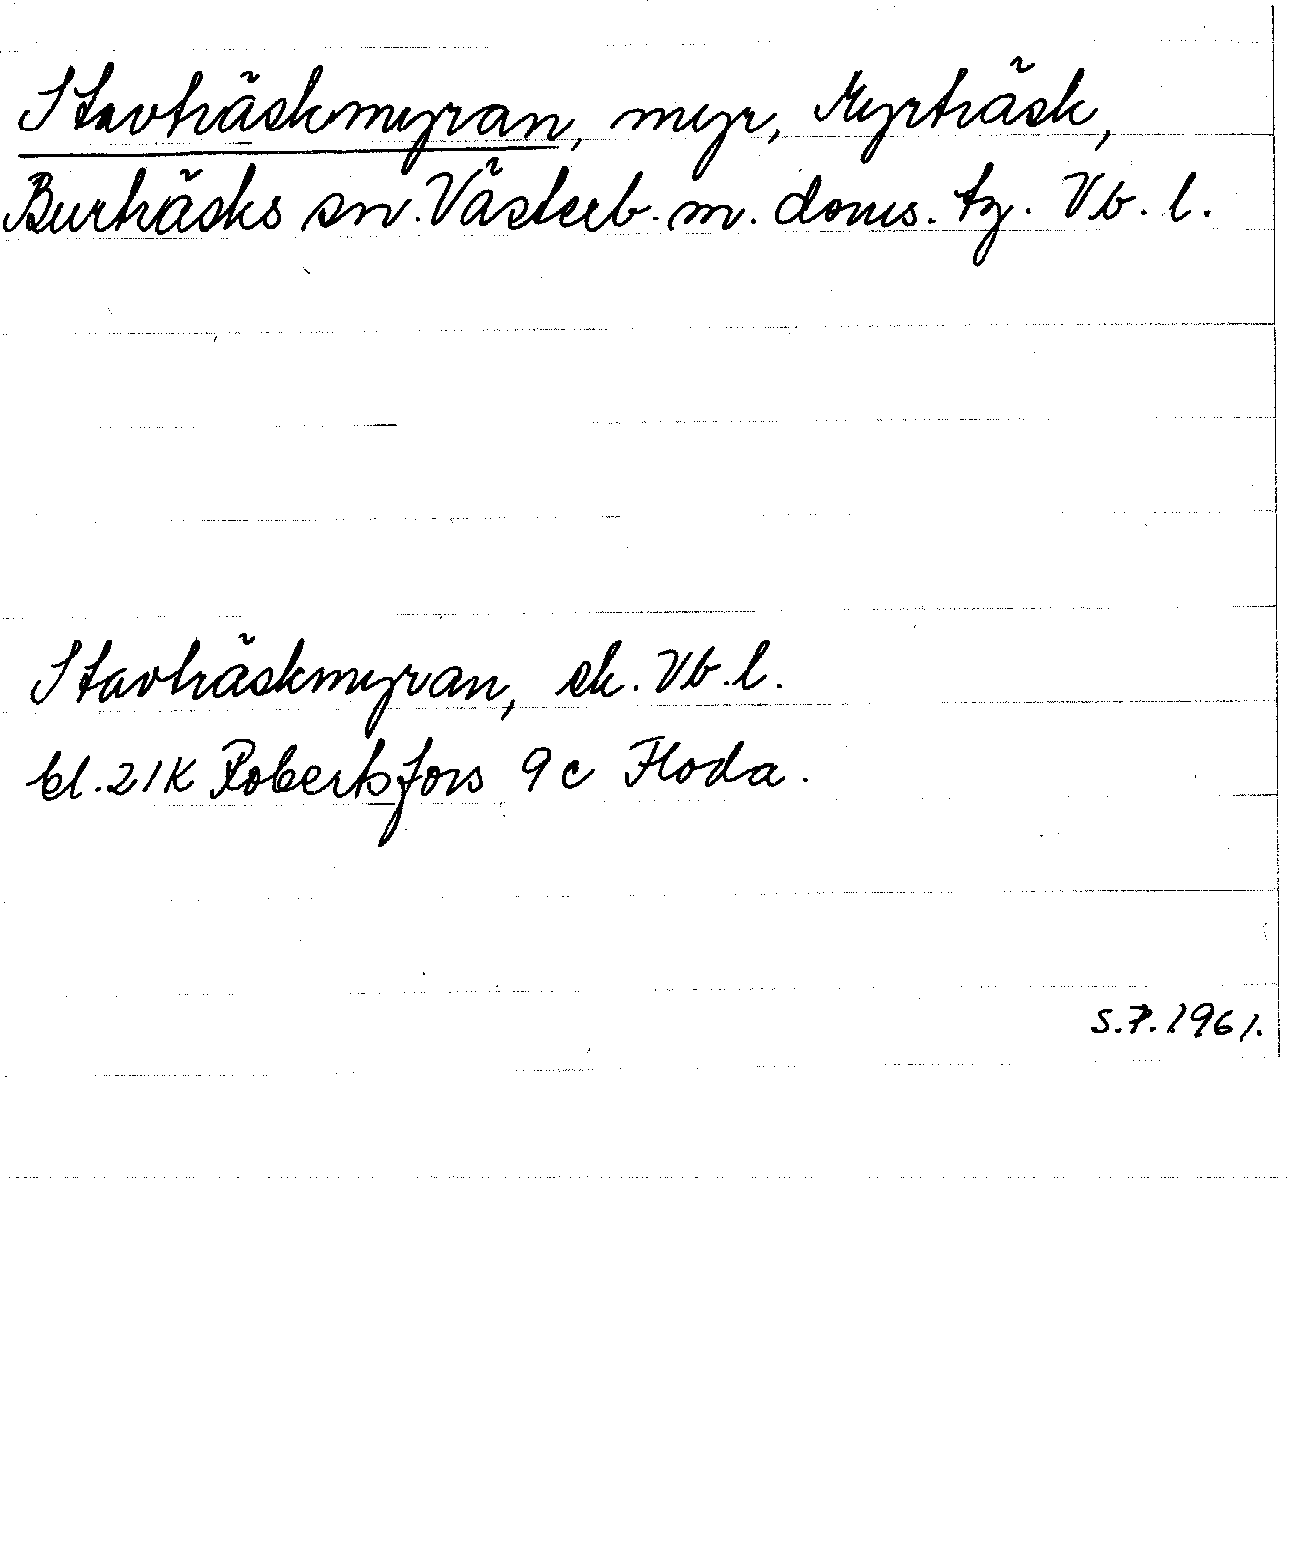 Stavträskmyran, myr, Myrträsk,
Burträsks sn. Västerb. m. doms. tg. Vb. l.
Stavträskmyran, ek. Vb. l.
bl. 21K Robertsfors 9c Floda.
5.7.1961.